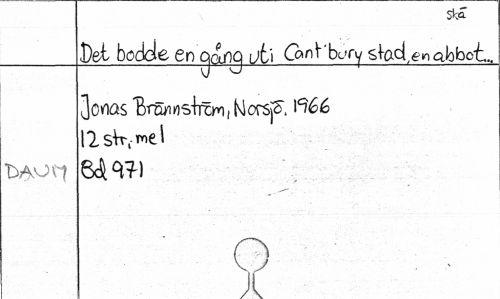 skā
Det bodde en gång uti Cant'bury stad, en abbot...
Jonas Brännström, Norsjö. 1966
12 str, mel
DAUM Bd 971